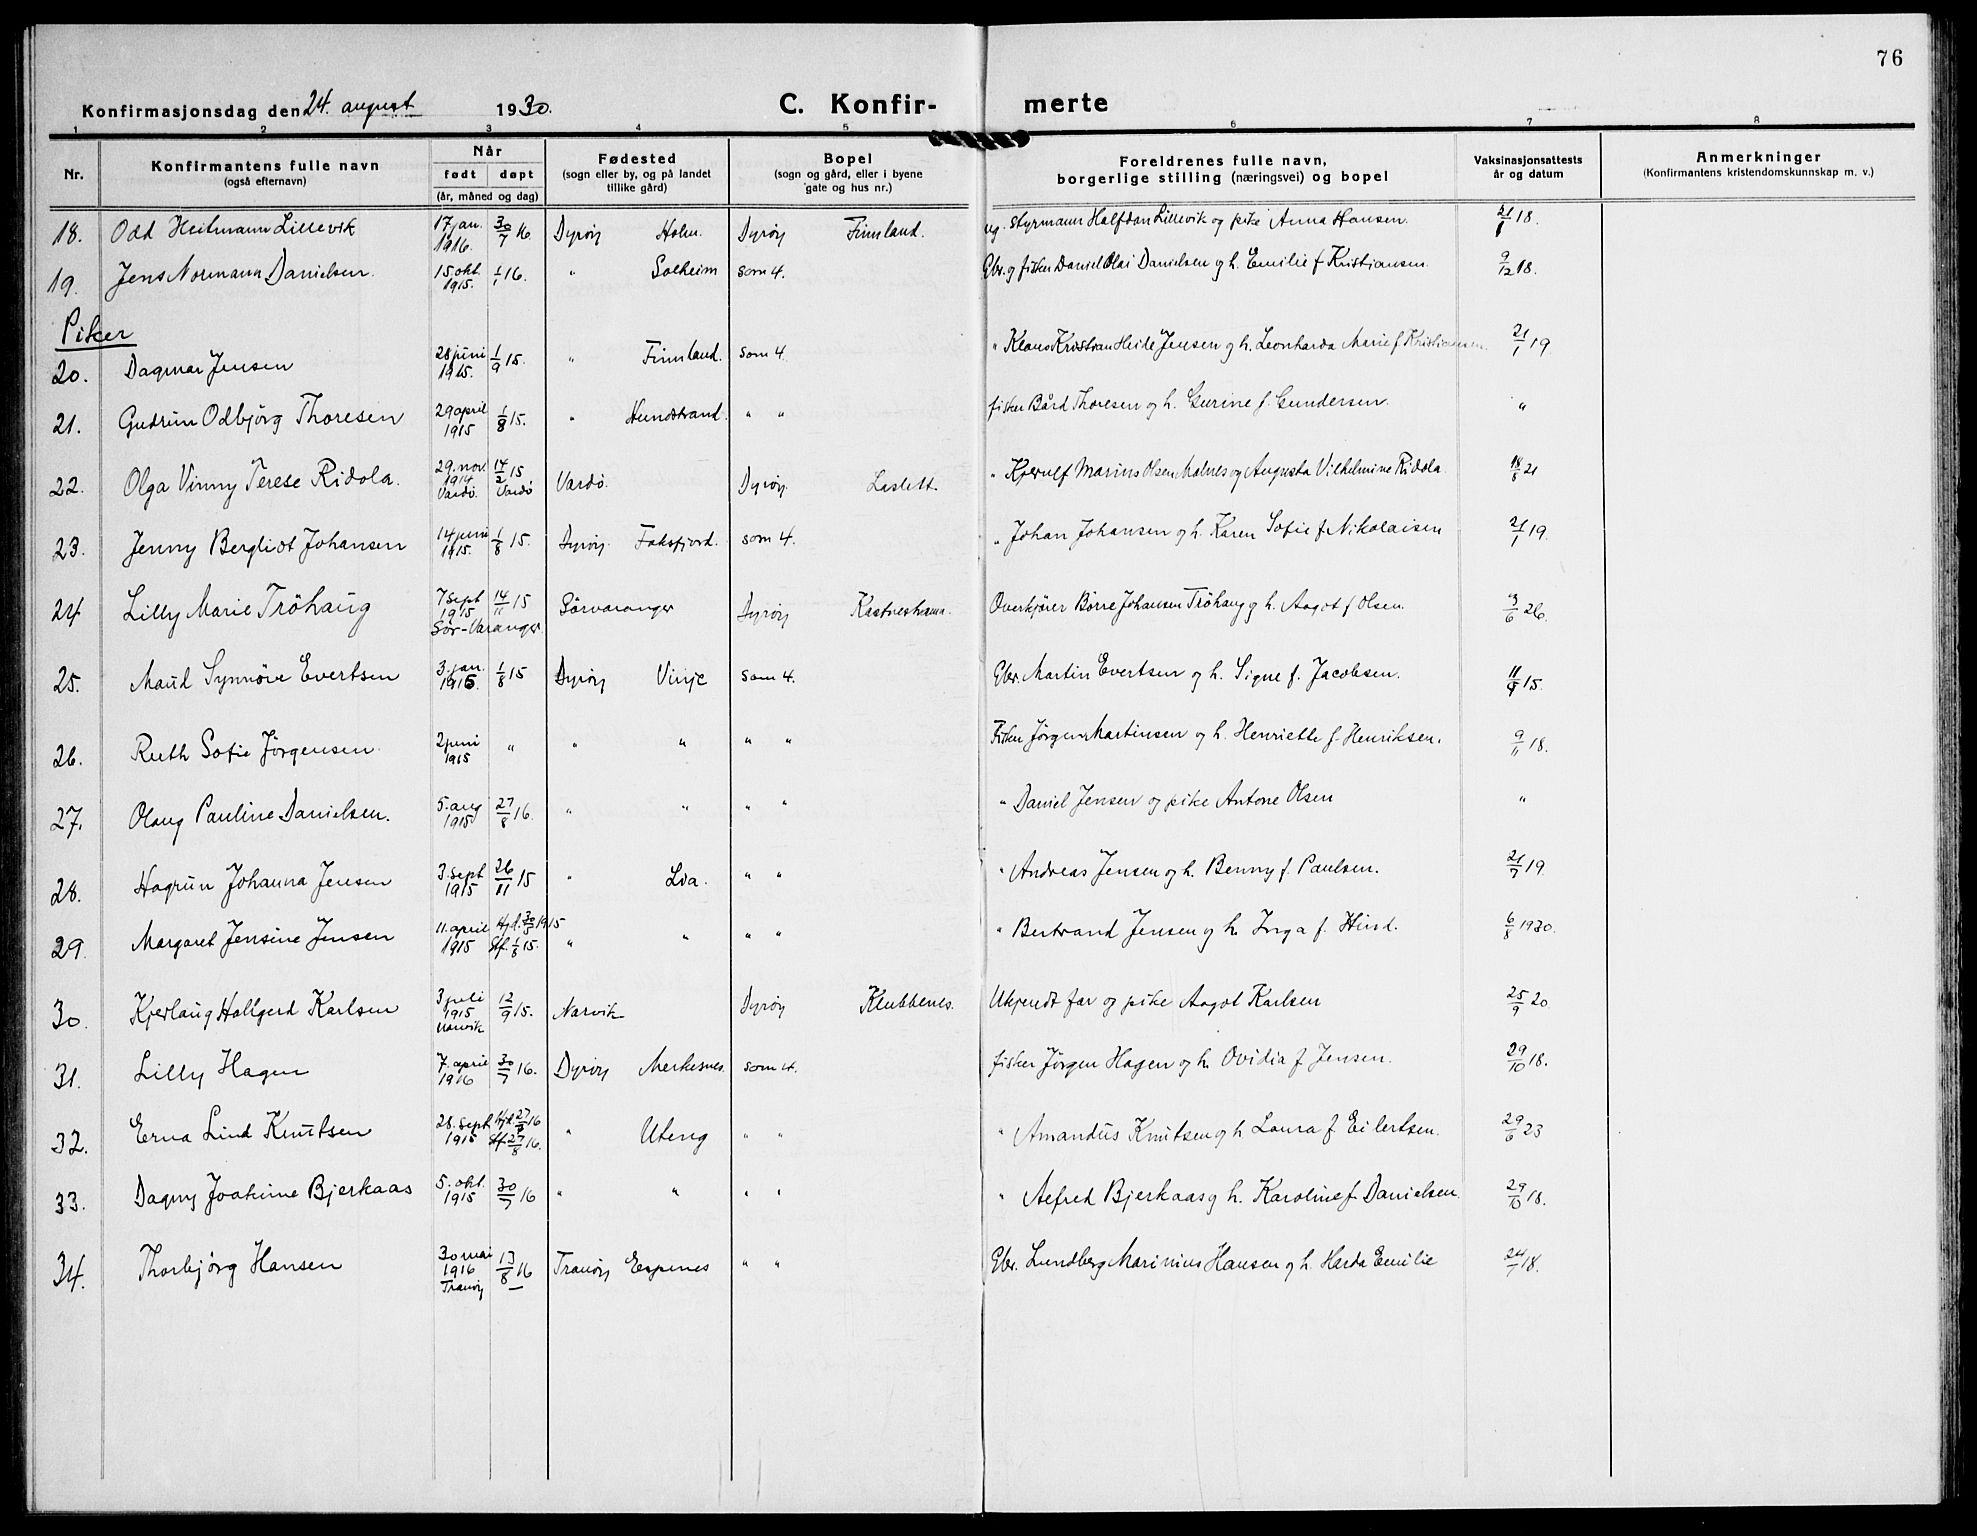 76
Konfirmasjonsdag den 24. august 1930. C. Konfir- merte
1 2 3 4 5 6 7 8
Nr. Konfirmantens fulle navn (også efternavn) Når født døpt (år, måned og dag) Fødested (sogn eller by, og på landet tillike gård) Bopel (sogn og gård, eller i byene gate og hus nr.) Foreldrenes fulle navn, borgerlige stilling (næringsvei) og bopel Vaksinasjonsattests år og datum Anmerkninger (Konfirmantens kristendomskunnskap m. v.)
18. Odd Heitmann Lillevik 17 jan. 1916. 30/7 16 Dyrøy Holm. Dyrøy Finnland. ug. styrmann Halfdan Lillevik og pike Anna Hansen. 21/1 18.
19. Jens Normann Danielsen. 15. okt. 1915. 1/1 16. " Solheim som 4. Gbr. og fisker Daniel Olai Danielsen og h. Emilie f. Kristiansen. 9/12 18.
Piker
20. Dagmar Jensen 28 juni 1915. 1/9 15. " Finnland. som 4. " Klaus Kristian Heide Jensen og h. Leonharda Marie f. Kristiansen. 21/1 19
21. Gudrun Odbjörg Thoresen 29 april 1915 1/8 15. " Hundstrand. " " fisker Bård Thoresen og h. Gurine f. Gundersen. "
22. Olga Vinny Terese Ridola. 29. nov. 1914 Vardö. 14/2 15 Vardö Vardö. Dyrøy. Laslett. " Kjerulf Marius Olsen Malnes og Augusta Vilhelmine Ridola 18/8 21
23. Jenny Bergliot Johansen 14 juni 1915. 1/8 15. Dyrøy. Faksfjord. som 4. " Johan Johansen og h. Karen Sofie f. Nikolaisen 21/1 19.
24 Lilly Marie Tröhaug 7 sept 1915 Sör-Varanger 14/11 15 Sörvaranger Dyrøy Kastneshamn. Overkjører Börre Johansen Tröhaug og h. Aagot f. Olsen. 3/6 26.
25. Maud Synnöve Evertsen 3. jan. 1915. 1/8 15 Dyrøy Vinje som 4. Gbr. Martin Evertsen og h. Signe f. Jacobsen. 11/9 15.
26. Ruth Sofie Jörgensen 2 juni 1915 " " " " " Fisker Jörgen Martinsen og h. Henriette f. Henriksen. 9/11 18.
27. Olaug Pauline Danielsen. 5. aug 1915 27/8 16. " " " " " Daniel Jensen og pike Antone Olsen "
28. Hagrun Johanna Jensen 3. sept 1915 26/11 15 " Lia. " " " Andreas Jensen og h. Benny f. Paulsen. 21/7 19.
29. Margaret Jensine Jensen 11. april 1915 Hjd. 30/5 1915 Stf. 1/8 15. " " " " " Bertrand Jensen og h. Inga f. Hind. 6/8 1930.
30. Kjerlaug Hallgerd Karlsen 3 juli 1915 Narvik 12/9 15. Narvik Dyrøy Klubbenes. Ukjendt far og pike Aagot Karlsen 25/9 20.
31. Lilly Hagen 7. april 1916 30/7 16. Dyrøy Merkesnes. som 4. fisker Jörgen Hagen og h. Ovidia f. Jensen. 29/10 18.
32. Erna Lind Knutsen 28. sept 1915 Hjd. 27/8 16 Stf. 27/8 16. " Uteng " " " Amandus Knutsen og h Laura f Eilertsen. 29/6 23
33. Dagny Joakime Bjerkaas 5. okt. 1915 30/7 16 " " " " " Alfred Bjerkaas og h. Karoline f. Danielsen. 29/10 18.
34. Thorbjørg Hansen 30 mai 1916 Tranöy 13/8 16 Tranöy Espenes " " Gbr. Lundberg Marinius Hansen og h. Harda Emilie 24/7 18.